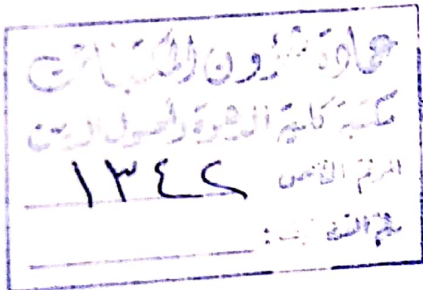 عمادة شؤون المكتبات
مكتبة كلية الدعوة وأصول الدين
الرقم العام ١٣٤٢
رقم التصنيف :